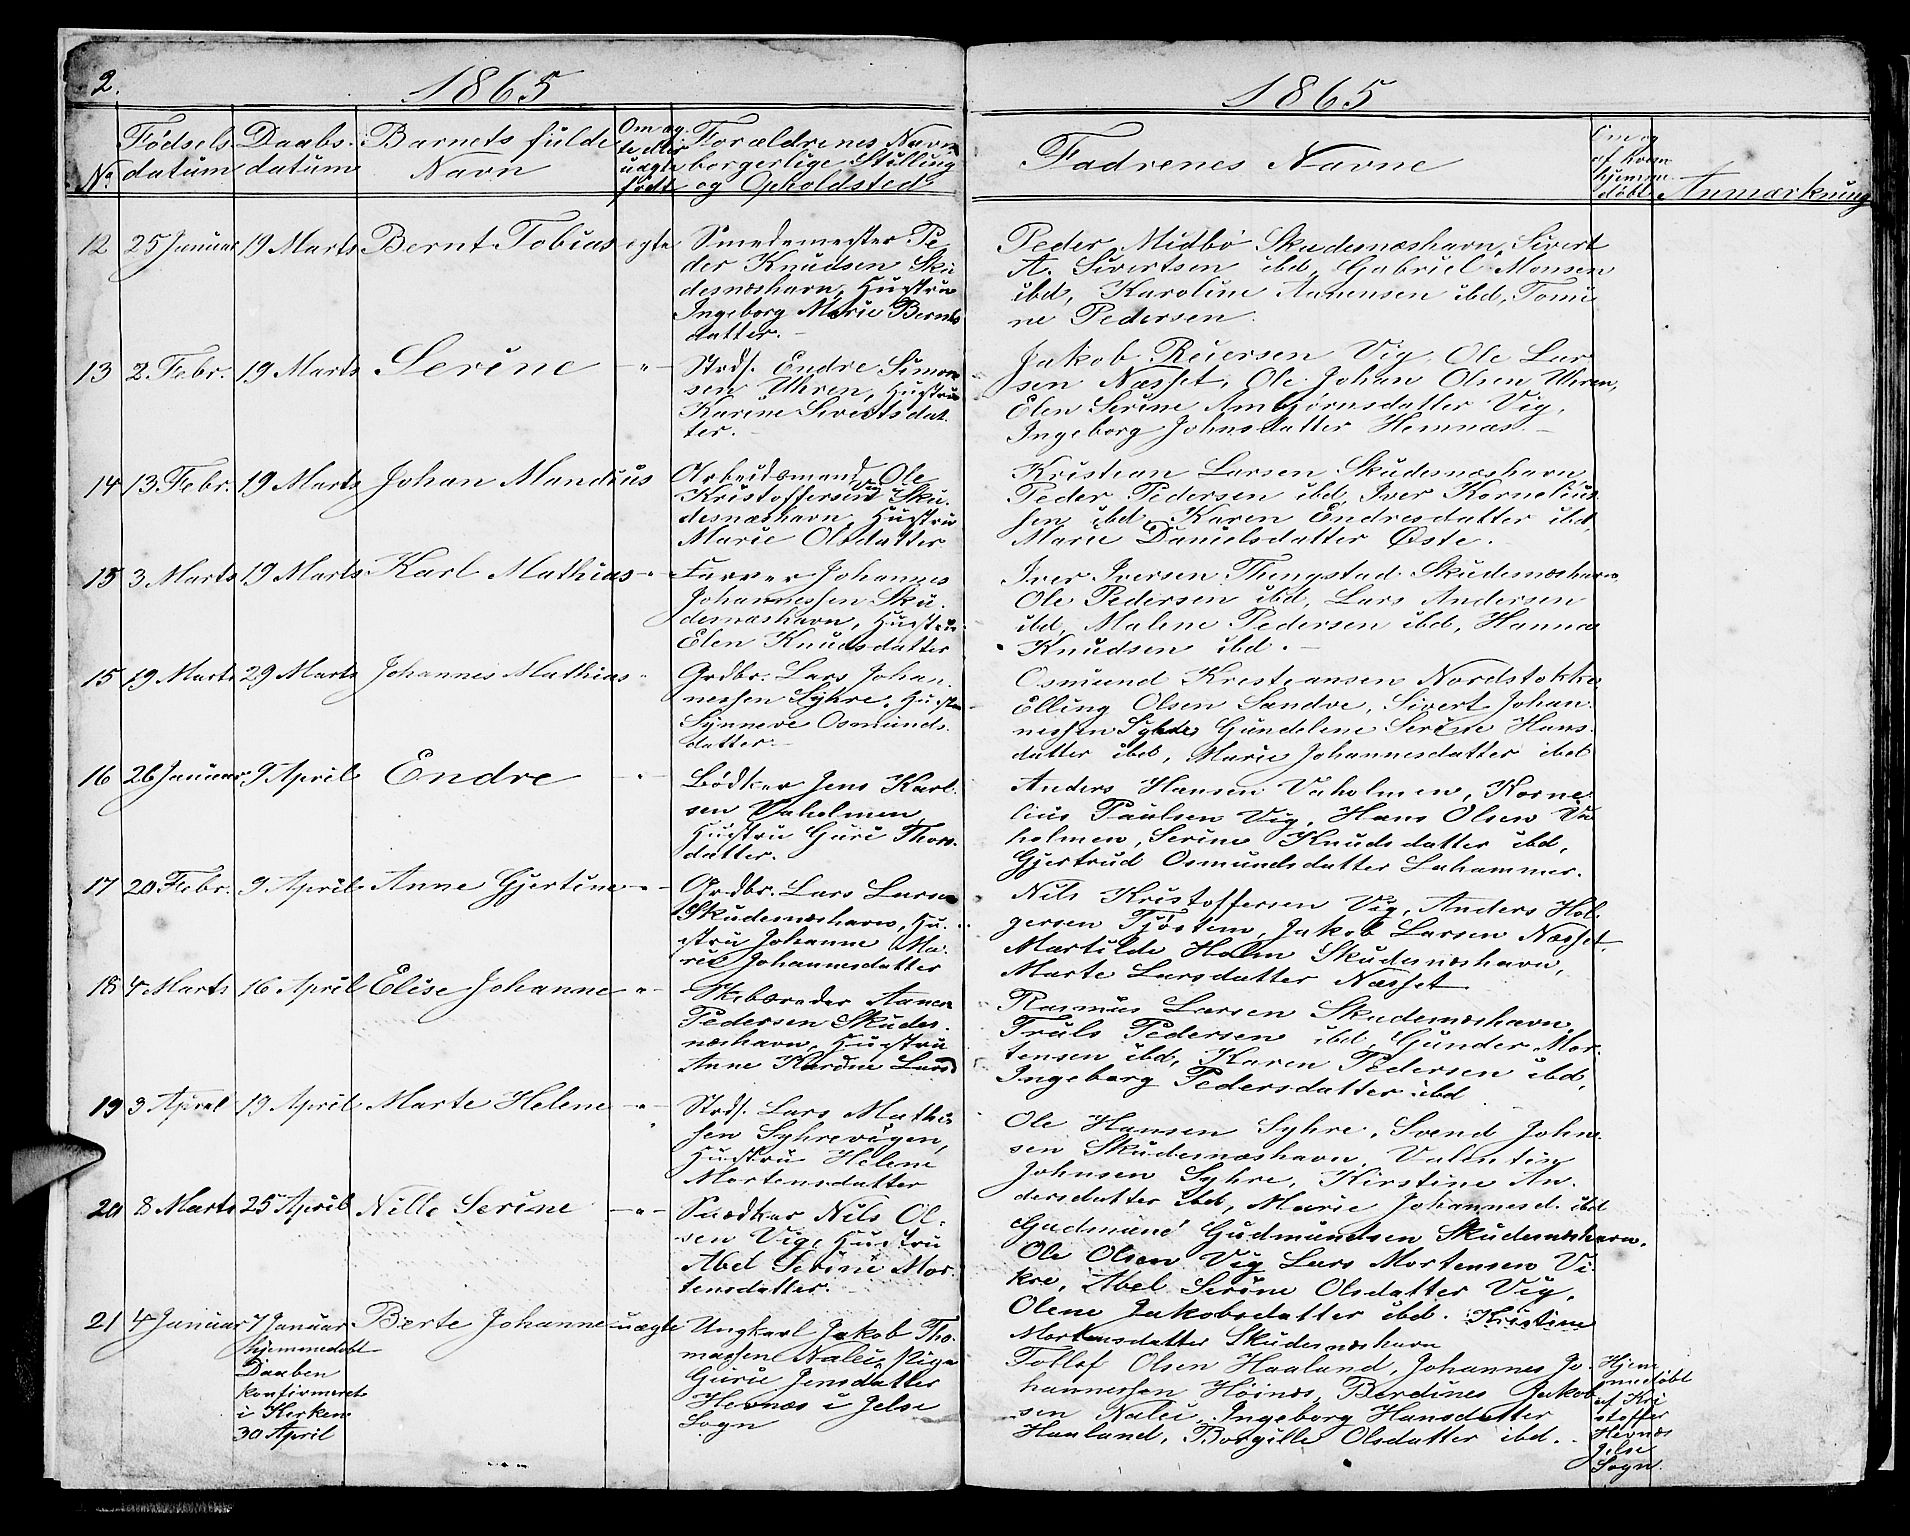 2.
1865
No
Fødsels
datum
Daabs.
datum
Barnets fulde
Navn
Om æg-
te eller
uægte
født
Forældrenes Navn
borgerlige Stilling
og Opholdsted
12 25 Januar 19 Marts Bernt Tobias egte
Smedemester Pe
der Knudsen Sku
desnæshavn, Hustru
Ingeborg Marie Bernts
datter.-
13 2 Febr. 19 Marts Serine -"-
Strds. Endre Simon
sen Uhren, Hustru
Karine Sivertsdat
ter.-
14 13 Febr. 19 Marts Johan Mandius
Arbeidsmand Ole
Kristoffersen Vig Sku
desnæshavn, Hustru
Marie Olsdatter
15 3 Marts 19 Marts Karl Mathias -"-
Farver Johannes
Johannessen Sku.
desnæshavn, Hustru
Elen Knudsdatter
15 19 Marts 29 Marts Johannes Mathias "
Grdbr. Lars Johan.
nessen Syhre, Hustru
Synneve Osmunds.
datter.-
16 26 Januar 9 April Endre -"-
Bødker Jens Karl.
sen Vaholmen
Hustru Guri Thors.
datter.
17 20 Febr. 9 April Anne Gjertine -"-
Grdbr. Lars Larsen
Skudesnæshavn, Hu.
stru Johanne Ma.
rie Johannesdatter
18 4 Marts 16 April Elise Johanne "-
Skibsreder Aanen
Pedersen Skudes.
næshavn, Hustru
Anne Karine Larsd
19 3 April 19 April Marte Helene -"-
Strds. Lars Mathi
sen Syhrevigen,
Hustru Helene
Mortensdatter
20 8 Marts 25 April Nille Serine -"-
Snedker Nils Ol-
sen Vig, Hustru
Abel Serine Mor.
tensdatter.
21 4 Januar 7 Januar Berte Johanne uægte
hjemmedøbt
Daaben
konfirmeret
i Kirken
30 April
Ungkarl Jakob Tho.
massen Nalei, Pige
Guri Jensdatter
Hevnæs i Jelse
Sogn
1865
Fadrenes Navne
Om og
af hvem
hjemme-
døbt
Anmærkning
Peder Midbø Skudesnæshavn, Sivert
A. Sivertsen ibd, Gabriel Monsen
ibd, Karoline Aanensen ibd, Tomi
ne Pedersen.
Jakob Reiersen Vig, Ole Lar
sen Næsset, Ole Johan Olsen Uhren,
Elen Serine Ambjørnsdatter Vig,
Ingeborg Johnsdatter Hemnæs.-
Kristian Larsen Skudesnæshavn
Peder Pedersen ibd, Iver Kornelius
sen ibd Karen Endresdatter ibd,
Marie Danielsdatter Øste.
Iver Iversen Thengstad Skudesnæshavn,
Ole Pedersen ibd, Lars Andersen
ibd, Malene Pedersen ibd, Hanna
Knudsen ibd.-
Osmund Kristiansen Nordstokke
Elling Olsen Sandve, Sivert Johan
nessen Syhre, Gundelene Serine Hans
datter ibd, Marie Johannesdatter ibd
Anders Hansen Vaholmen, Korne
lius Paulsen Vig, Hans Olsen Va
holmen, Serine Knudsdatter ibd,
Gjertrud Osmundsdatter Lahammer.
Nils Kristoffersen Vig, Anders Hol.
gersen Tjøstem, Jakob Larsen Næsset
Martilde Holm Skudesnæshavn,
Marte Larsdatter Næsset
Rasmus Larsen Skudesnæshavn,
Truls Pedersen ibd, Gunder Mor.
tensen ibd, Karen Pedersen ibd,
Ingeborg Pedersdatter ibd
Ole Hansen Syhre, Svend John
sen Skudesnæshavn, Valentin
Johnsen Syhre, Kirstine An.
dersdatter ibd, Marie Johannesd. ibd
Gudmund Gudmundsen Skudesnæshavn.
Ole Olsen Vig Lars Mortensen Vi.
kre, Abel Serine Olsdatter Vig,
Olene Jakobsdatter ibd. Kristine
Mortensdatter Skudesnæshavn
Tollef Olsen Haaland, Johannes Jo-
hannessen Høinæs, Berdines Jakob
sen Nalei, Ingeborg Hansdatter
Haaland, Borgille Olsdatter ibd.
Hjem
medøbt
af Kri
stoffer
Hevnæs
Jelse
Sogn.